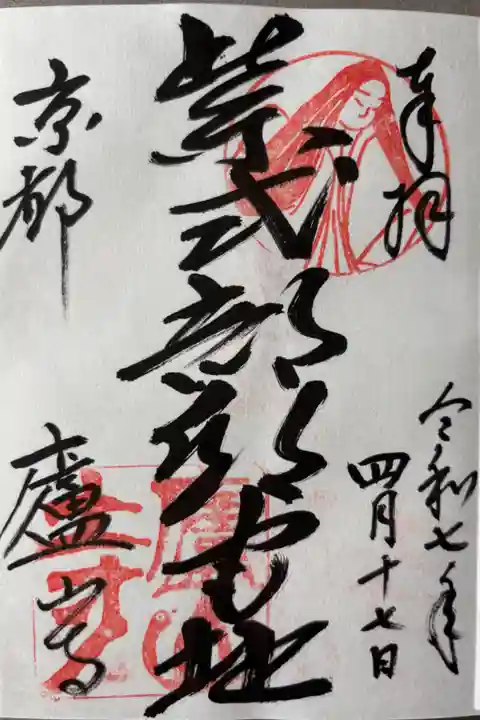 奉拝
令和七年
四月十七日
紫式部邸宅址
京都
廬山寺